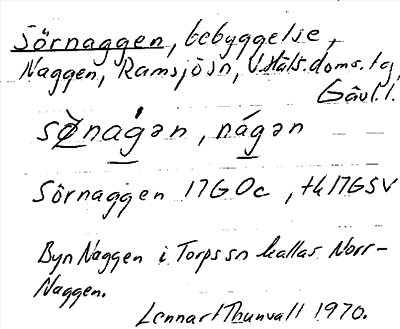 Sörnaggen, bebyggelse,
Naggen, Ramsjö sn, V. Häls. doms. tg,
Gävl. l.
sø̀nagən, nágən
Sörnaggen 17G0c, tk17GSV
Byn Naggen i Torps sn kallas Norr-
Naggen.
Lennart Thunvall 1970.